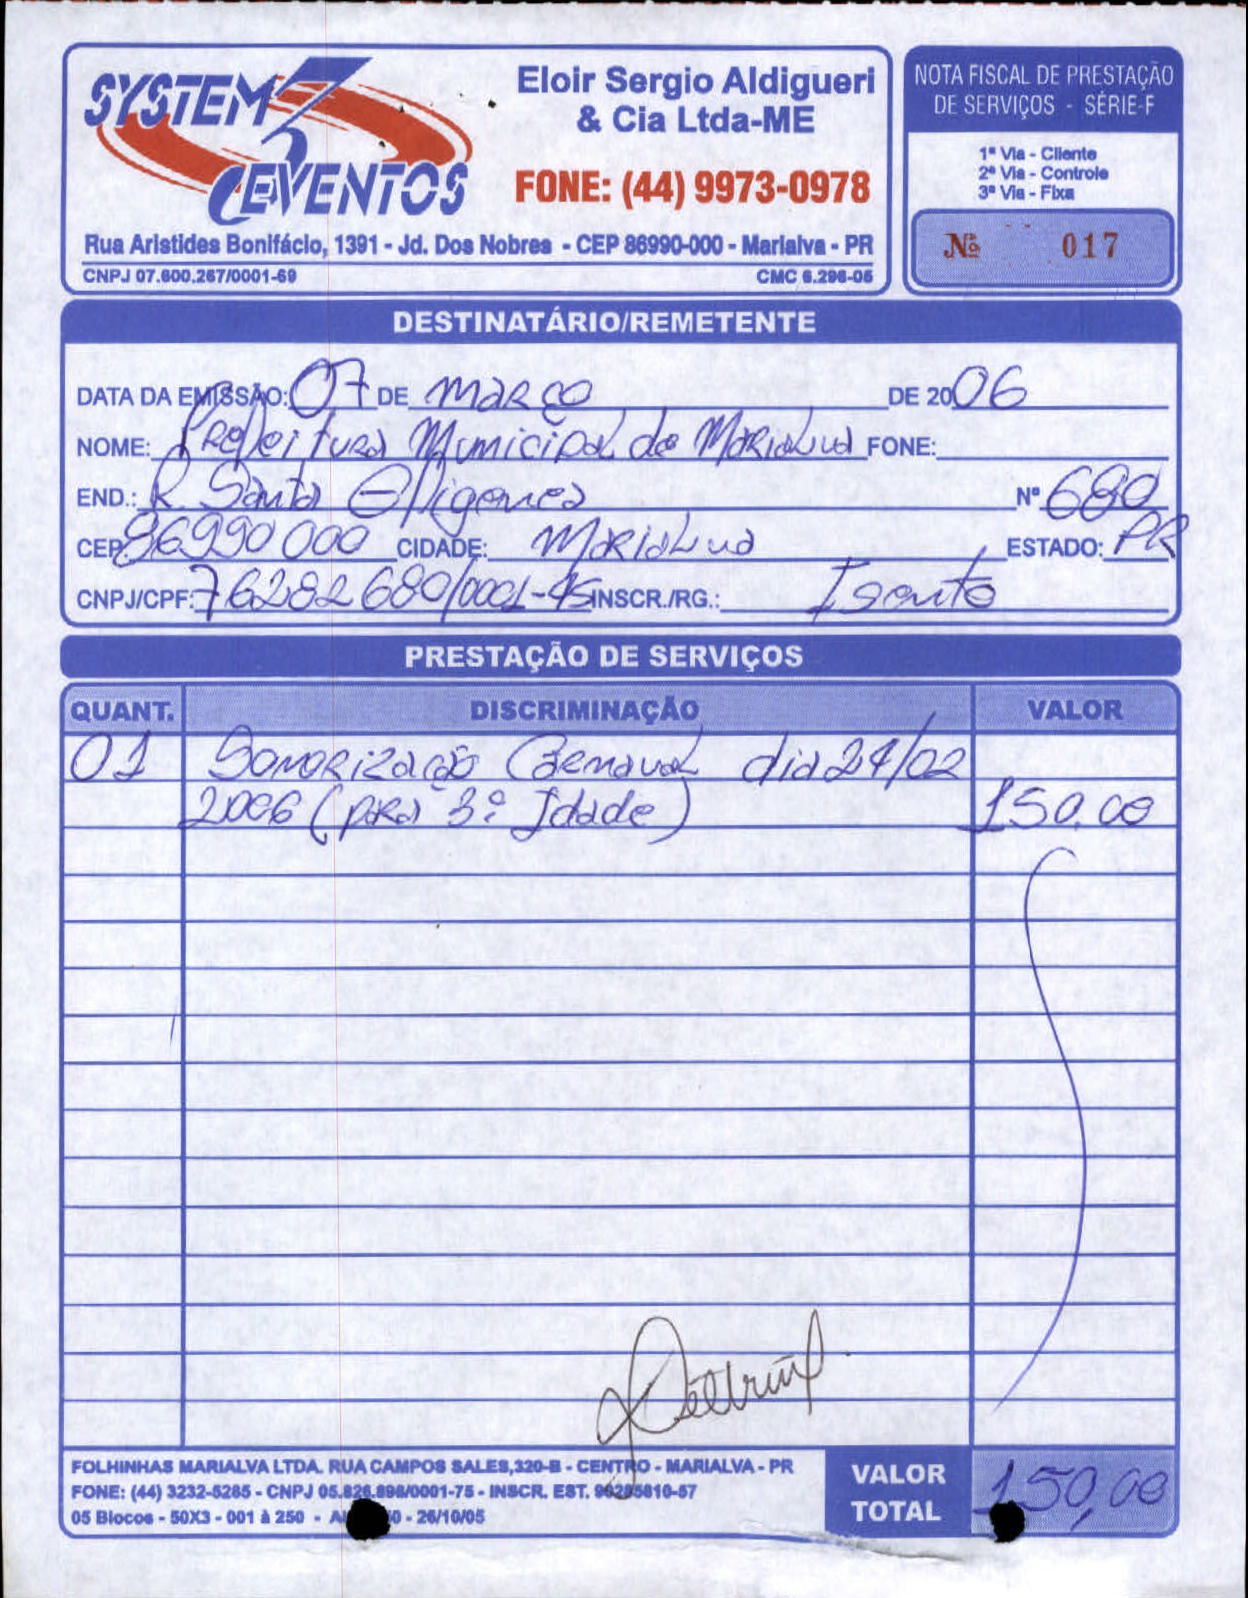 SYSTEM 3 EVENTOS
Eloir Sergio Aldigueri
& Cia Ltda-ME
FONE: (44) 9973-0978
Rua Aristides Bonifácio, 1391 - Jd. Dos Nobres - CEP 86990-000 - Marialva - PR
CNPJ 07.600.267/0001-69 CMC 6.296-06
NOTA FISCAL DE PRESTAÇÃO
DE SERVIÇOS - SÉRIE-F
1ª Via - Cliente
2ª Via - Controle
3ª Via - Fixa
Nº 017
DESTINATÁRIO/REMETENTE
DATA DA EMISSÃO: 07 DE março DE 2006
NOME: Prefeitura Municipal de Marialva FONE:
END.: R. Santa Efigenea Nº 680
CEP 86990 000 CIDADE: Marialva ESTADO: PR
CNPJ/CPF: 76282680/0001-45 INSCR./RG.: Isento
PRESTAÇÃO DE SERVIÇOS
QUANT. DISCRIMINAÇÃO VALOR
01 Sonorização Carnaval dia 24/02
2006 (para 3ª Idade) 150,00
FOLHINHAS MARIALVA LTDA. RUA CAMPOS SALES, 320-B - CENTRO - MARIALVA - PR
FONE: (44) 3232-5285 - CNPJ 05.826.898/0001-75 - INSCR. EST. 90285810-57
05 Blocos - 50X3 - 001 à 250 - - 26/10/05
VALOR
TOTAL 150,00